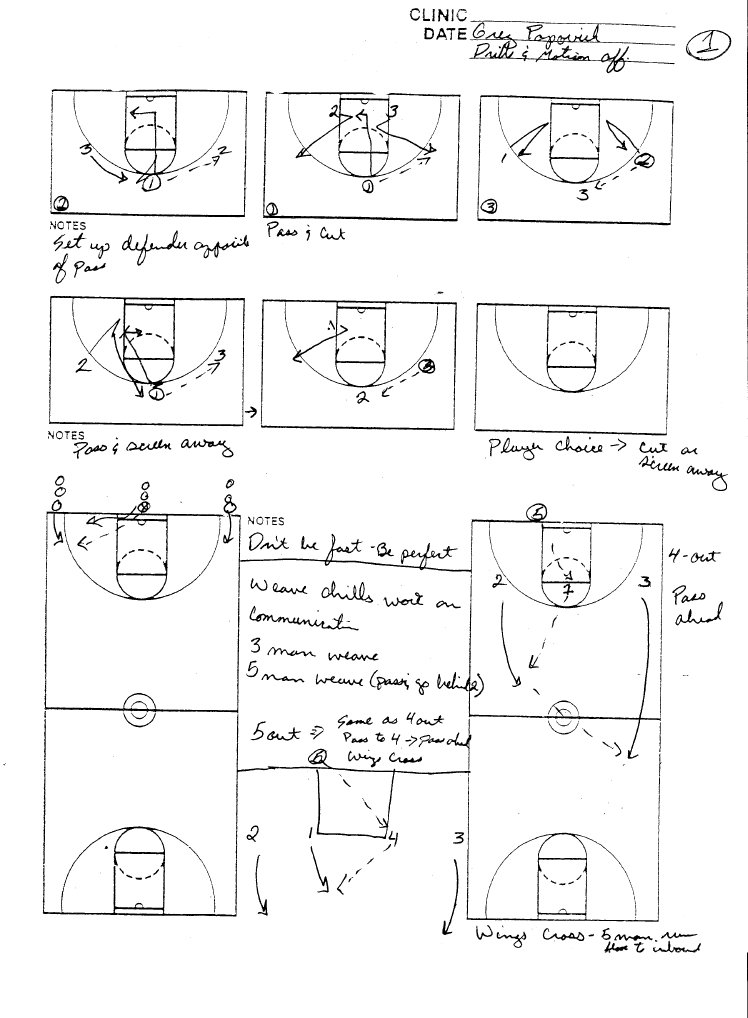 CLINIC
DATE Greg Popovich
Drills & Motion Off.
1
2 3
3 2
1
1
1 2
3
2 1 3
NOTES
Set up defender opposite
of Pass
Pass & Cut
2 3
1
1
3
2
NOTES
Pass & screen away
Player choice → Cut or
screen away
NOTES
Don't be fast - Be perfect
Weave drills work on
Communication
3 man weave
5 man weave (pass, go behind 2)
5 out ⇒ Same as 4 out
Pass to 4 → Pass ahead
Wings Cross
5
2 1 4 3
5
2 1 3
4-out
Pass
ahead
Wings Cross - 5 man run
to inbound